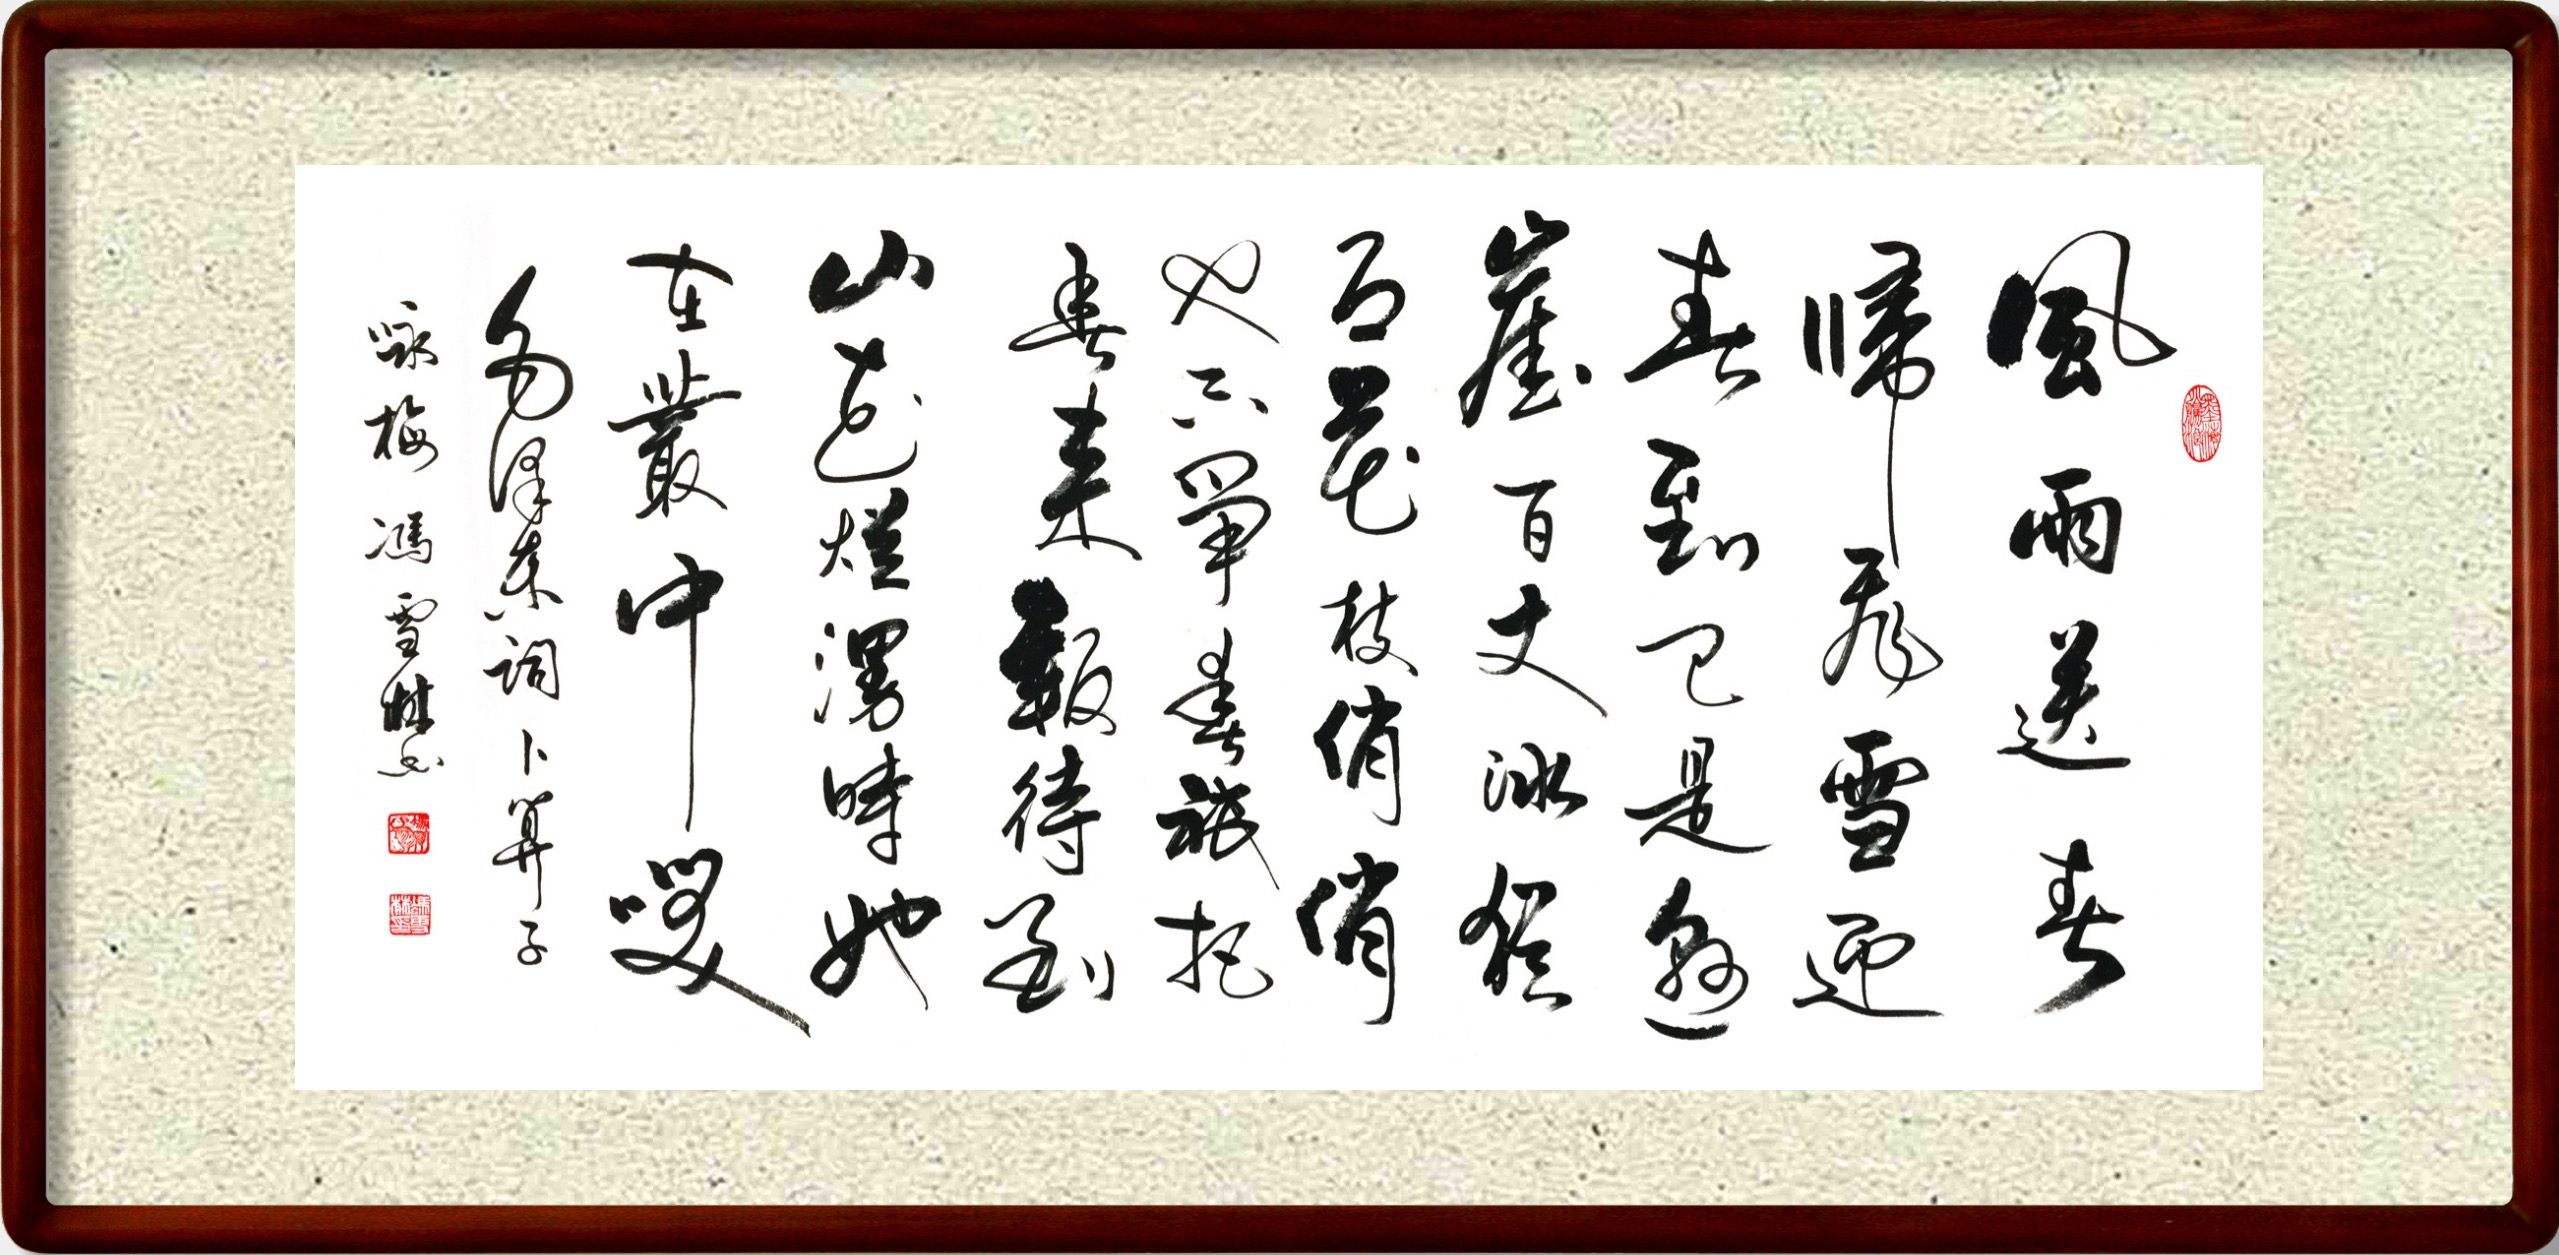 風雨送春
歸飛雪迎
春到已是懸
崖百丈冰猶
有花枝俏俏
也不爭春祇把
春來報待到
山花爛漫時她
在叢中笑
毛澤東詞卜算子
詠梅 馮雪林書